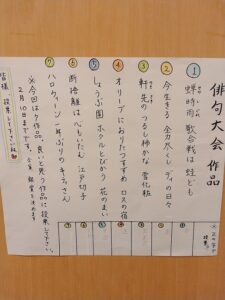 俳句大会 作品
① 蝉時雨 歌合戦は 蛙ども
② 今生きる 全力尽くし ディの日々
③ 軒先の つるし柿かな 雪化粧
④ オリーブに おりたつすずめ ロスの宿
⑤ しょうぶ園 ホタルとびかう 花のまい
⑥ 断捨離は べもいたん 江戸切子
⑦ ハロウィーン 一年ぶりの キティさん
※今回は7作品、良いと思う作品に投票して下さい。
2月10日までです。
皆様、投票して下さいね
① ② ③ ④ ⑤ ⑥ ⑦